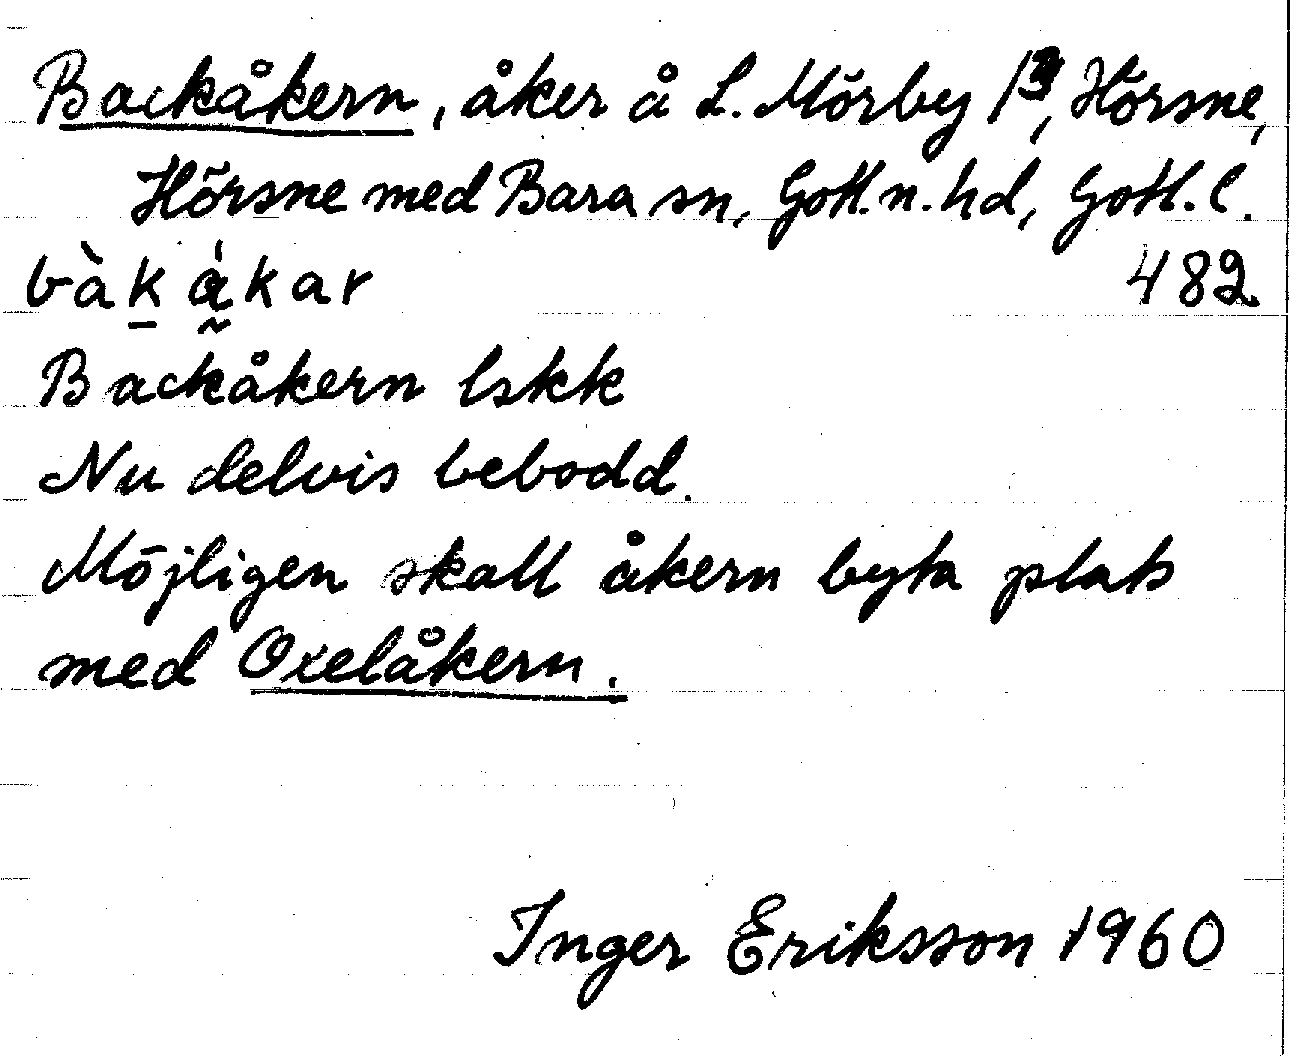 Backåkern, åker å L. Mörby 1³, Hörsne,
Hörsne med Bara sn, Gotl. n. hd, Gotl. l.
bàk̠ ǻ̰kar 482
Backåkern lskk
Nu delvis bebodd.
Möjligen skall åkern byta plats
med Oxelåkern.
Inger Eriksson 1960